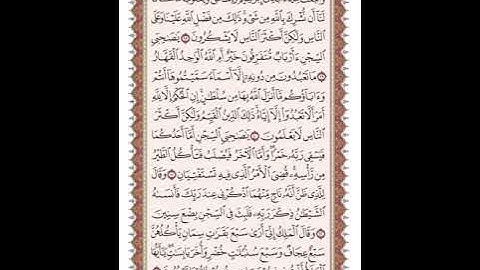 لَنَآ أَن نُّشْرِكَ بِٱللَّهِ مِن شَىْءٍ ۚ ذَٰلِكَ مِن فَضْلِ ٱللَّهِ عَلَيْنَا وَعَلَى
ٱلنَّاسِ وَلَٰكِنَّ أَكْثَرَ ٱلنَّاسِ لَا يَشْكُرُونَ ٣٨ يَٰصَٰحِبَىِ
ٱلسِّجْنِ ءَأَرْبَابٌ مُّتَفَرِّقُونَ خَيْرٌ أَمِ ٱللَّهُ ٱلْوَٰحِدُ ٱلْقَهَّارُ
٣٩ مَا تَعْبُدُونَ مِن دُونِهِۦٓ إِلَّآ أَسْمَآءً سَمَّيْتُمُوهَآ أَنتُمْ
وَءَابَآؤُكُم مَّآ أَنزَلَ ٱللَّهُ بِهَا مِن سُلْطَٰنٍ ۚ إِنِ ٱلْحُكْمُ إِلَّا لِلَّهِ ۚ
أَمَرَ أَلَّا تَعْبُدُوٓا۟ إِلَّآ إِيَّاهُ ۚ ذَٰلِكَ ٱلدِّينُ ٱلْقَيِّمُ وَلَٰكِنَّ أَكْثَرَ
ٱلنَّاسِ لَا يَعْلَمُونَ ٤٠ يَٰصَٰحِبَىِ ٱلسِّجْنِ أَمَّآ أَحَدُكُمَا
فَيَسْقِى رَبَّهُۥ خَمْرًا ۖ وَأَمَّا ٱلْـَٔاخَرُ فَيُصْلَبُ فَتَأْكُلُ ٱلطَّيْرُ
مِن رَّأْسِهِۦ ۚ قُضِىَ ٱلْأَمْرُ ٱلَّذِى فِيهِ تَسْتَفْتِيَانِ ٤١ وَقَالَ
لِلَّذِى ظَنَّ أَنَّهُۥ نَاجٍ مِّنْهُمَا ٱذْكُرْنِى عِندَ رَبِّكَ فَأَنسَىٰهُ
ٱلشَّيْطَٰنُ ذِكْرَ رَبِّهِۦ فَلَبِثَ فِى ٱلسِّجْنِ بِضْعَ سِنِينَ
٤٢ وَقَالَ ٱلْمَلِكُ إِنِّىٓ أَرَىٰ سَبْعَ بَقَرَٰتٍ سِمَانٍ يَأْكُلُهُنَّ
سَبْعٌ عِجَافٌ وَسَبْعَ سُنۢبُلَٰتٍ خُضْرٍ وَأُخَرَ يَابِسَٰتٍ ۖ يَٰٓأَيُّهَا